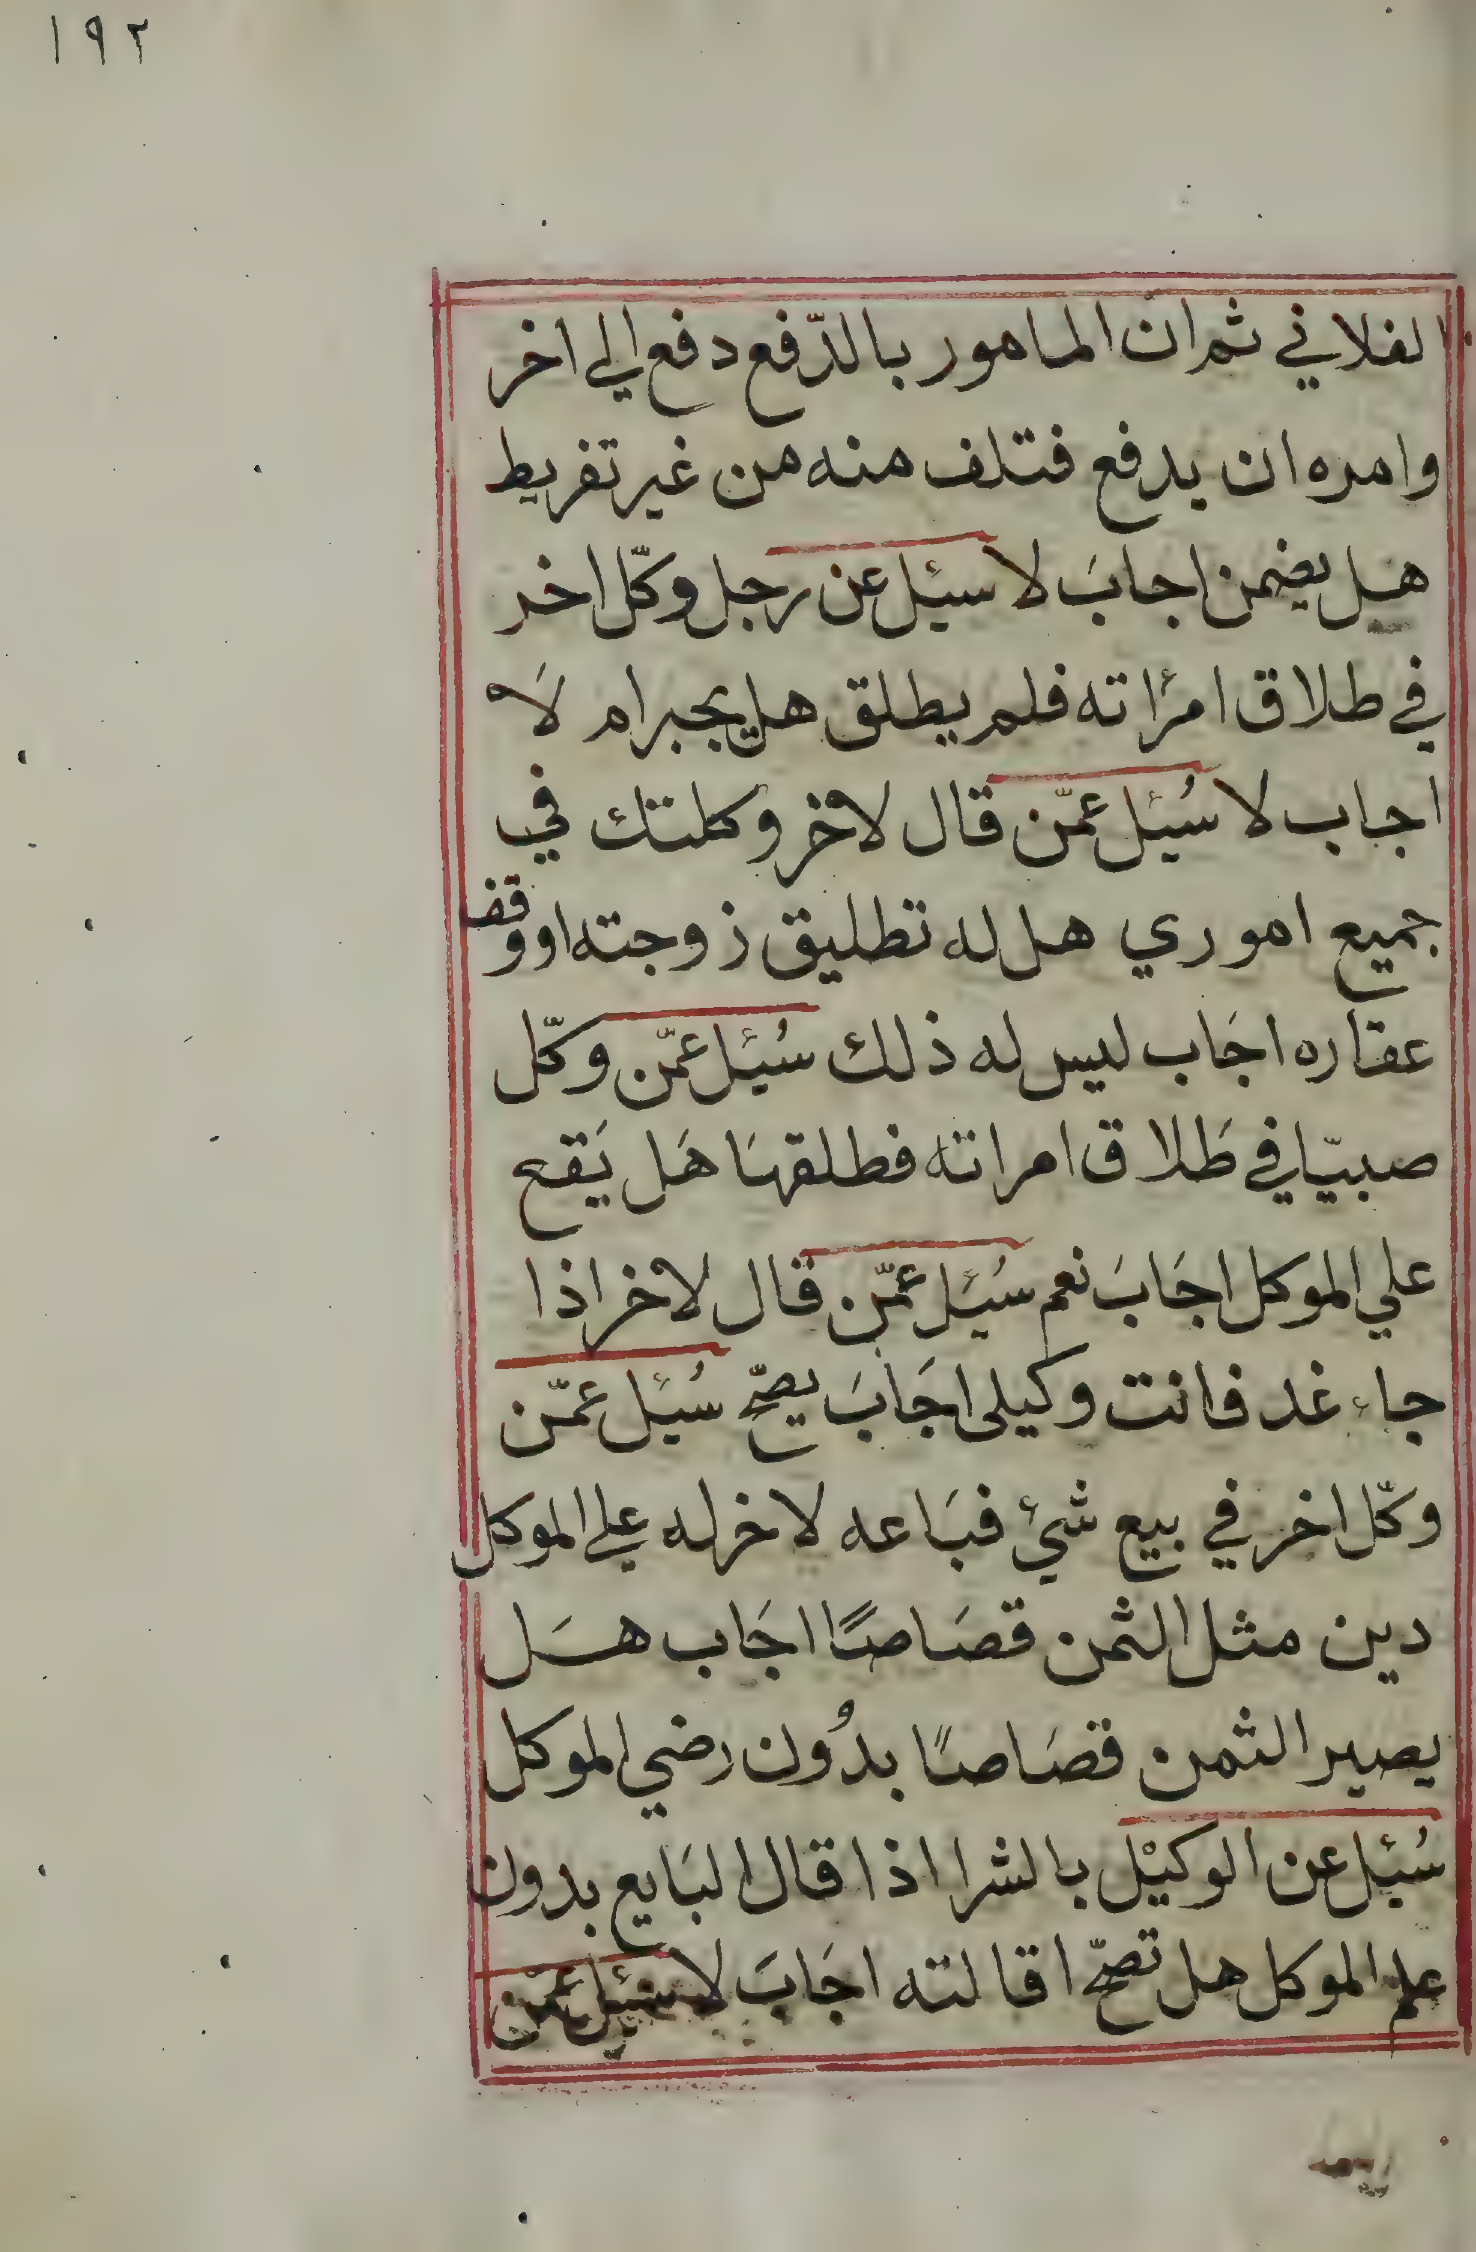 ١٩٢
الفلاني ثم ان المامور بالدّفع دفع الي اخر
وامره ان يدفع فتلف منه من غير تفريط
هل يضمن اجابَ لا سئيل عن رجل وكّل اخر
في طلاق امرٔاته فلم يطلق هل يجبر ام لَا
اجاب لا سُئيل عمّن قال لاخر وكلتك في
جميع اموري هل له تطليق زوجته او وقف
عقاره اجَاب ليس له ذلك سُئيل عمّن وكّل
صبيّا في طَلاق امراته فطلقهَا هَل يَقع
علي الموكل اجَابَ نعم سُئيل عمّن قال لاخر اذا
جاء غد فانت وكيلى اجَابَ يصحّ سُئيل عمّن
وكّل اخر في بيع شئ فبَاعه لاخر له علي الموكل
دين مثل الثمن قصَاصًا اجَاب هَل
يصير الثمن قصَاصًا بدُون رضي الموكل
سُئيل عن الوكيْل بالشرا اذا قال البَايع بدون
علم الموكل هل تصحّ اقالته اجَابَ لا سئيل عمّن